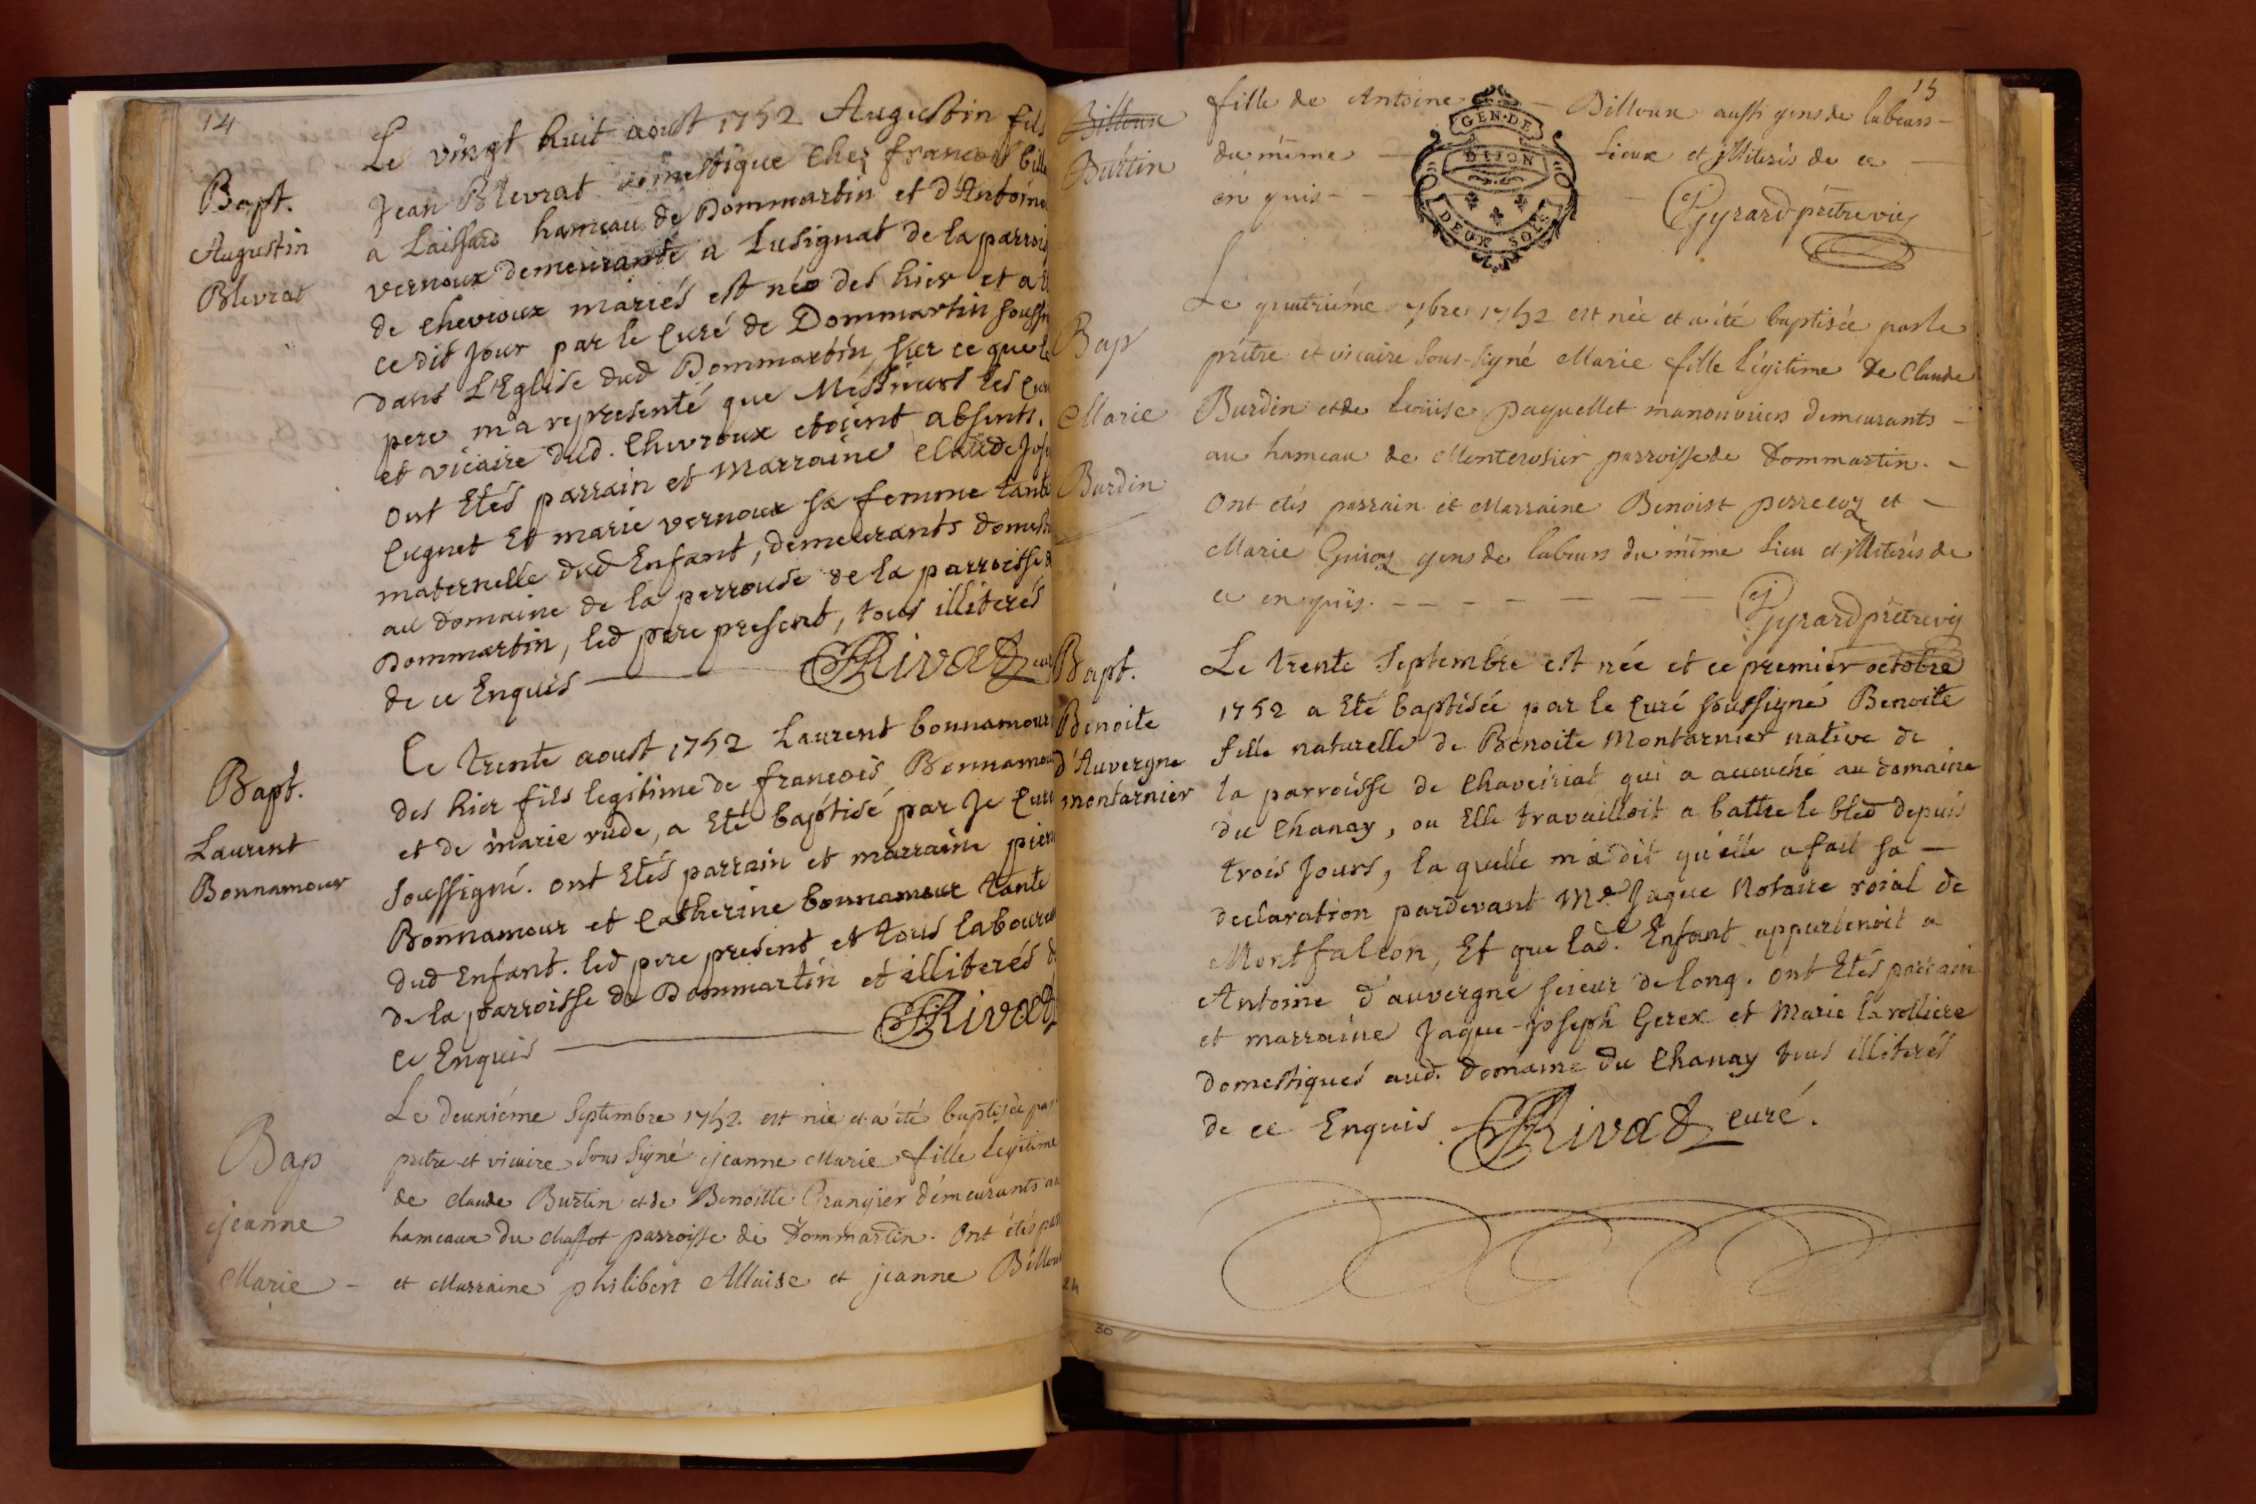 14
Bapt.
Augustin
Blevrat
Le vingt huit aoust 1752 Augustin fils
Jean Blevrat domestique chez francois bill
a Laissard hameau de Dommartin et d'Antoine
vernoux demeurante a Lusignat de la parrois
de chevroux mariés est née des hier et a é
ce dit jour par le curé de Dommartin soussi
dans L'Eglise dud Dommartin, sur ce que le
pere m'a representé que Messieurs les cur
et vicaire dud. Chevroux etoient absents.
ont Etés parrain et Marraine Claude Jose
Cugnet Et marie vernoux sa femme tante
maternelle dud Enfant, demeurants domesti
au domaine de la perrouse de la parroisse d
Dommartin, led pere present, tous illiterés
de ce Enquis Rivat cur
Bapt.
Laurent
Bonnamour
Le trente aoust 1752 Laurent bonnamour
des hier fils legitime de francois Bonnamour
et de marie rude, a Eté baptisé par Je Curé
soussigné. ont Etés parrain et marraine pierr
Bonnamour et Catherine bonnamour tante
dud Enfant. led pere present et tous laboureu
de la parroisse de Dommartin et illiterés d
ce Enquis Rivat
Bap
jeanne
Marie -
Le deuxiéme Septembre 1752. est née et a été baptisée par
pretre et vicaire sous signé jeanne Marie fille legitime
de claude Burtin et de Benoitte Grangier démeurants au
hameaux du chaffot parroisse de Dommartin. Ont étés par
et Marraine philibert Alluise et jeanne Billou
15
Billoux
Burtin
fille de Antoine Billoux aussi gens de labeurs
du même Lieux et illiterés de ce
en quis - Gyrard prêtre vic
GEN. DE
DIJON
DEUX SOLS
Bap
Marie
Burdin
Le quatriéme 7bre 1752 est née et a été baptisée par le
prêtre et vicaire sous-signé Marie fille légitime De Claude
Burdin et de Louise paquellet manouvriers demeurants -
au hameau de Monterosier parroisse de Dommartin. -
Ont etés parrain et Marraine Benoist perret et -
Marie Guioz gens de labeurs du même lieu et illiterés de
ce enquis. - - - - - - - Gyrard prêtre vic
Bapt.
Benoite
d'Auvergne
montarnier
Le trente Septembre est née et ce premier octobre
1752 a Eté baptisée par le Curé soussigné Benoite
fille naturelle de Benoite Montarnier native de
la parroisse de Chaveiriat qui a accouché au domaine
du Chanay, ou Elle travailloit a battre le bled depuis
trois Jours, la quelle m'a dit qu'elle a fait sa -
declaration pardevant Me. Jaque Notaire roial de
Montfalcon, Et que lad. Enfant appartenoit a
Antoine d'auvergne scieur de long. ont Etés parrain
et marraine Jaque-joseph Gerex et Marie la rolliere
domestiques aud. domaine du Chanay tous illiterés
de ce Enquis. Rivat curé.
24
30